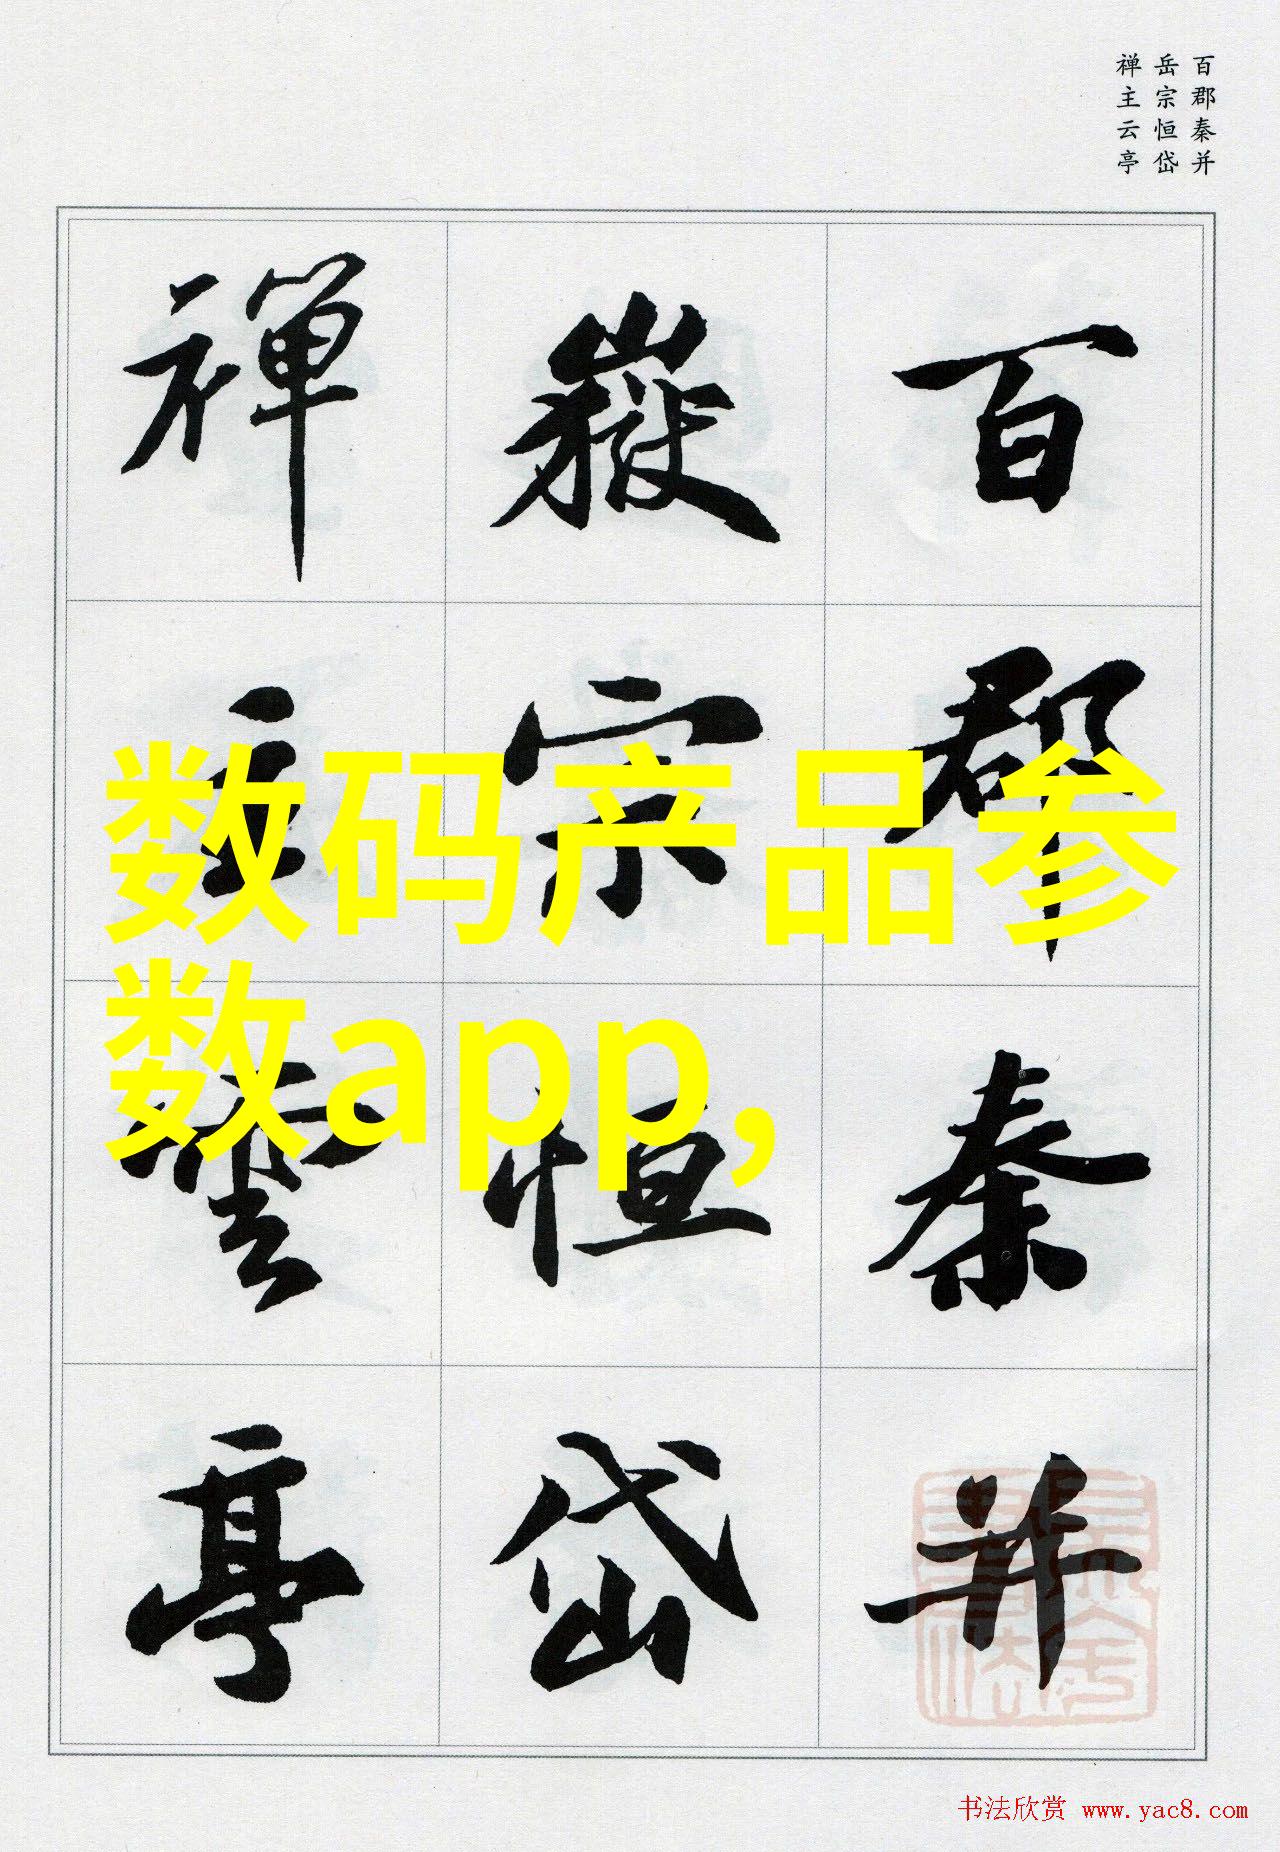 百郡秦并
岳宗恒岱
禅主云亭
百郡秦并
嶽宗恒岱
禅主雲亭
数码产品参
数app,
书法欣赏 www.yac8.com